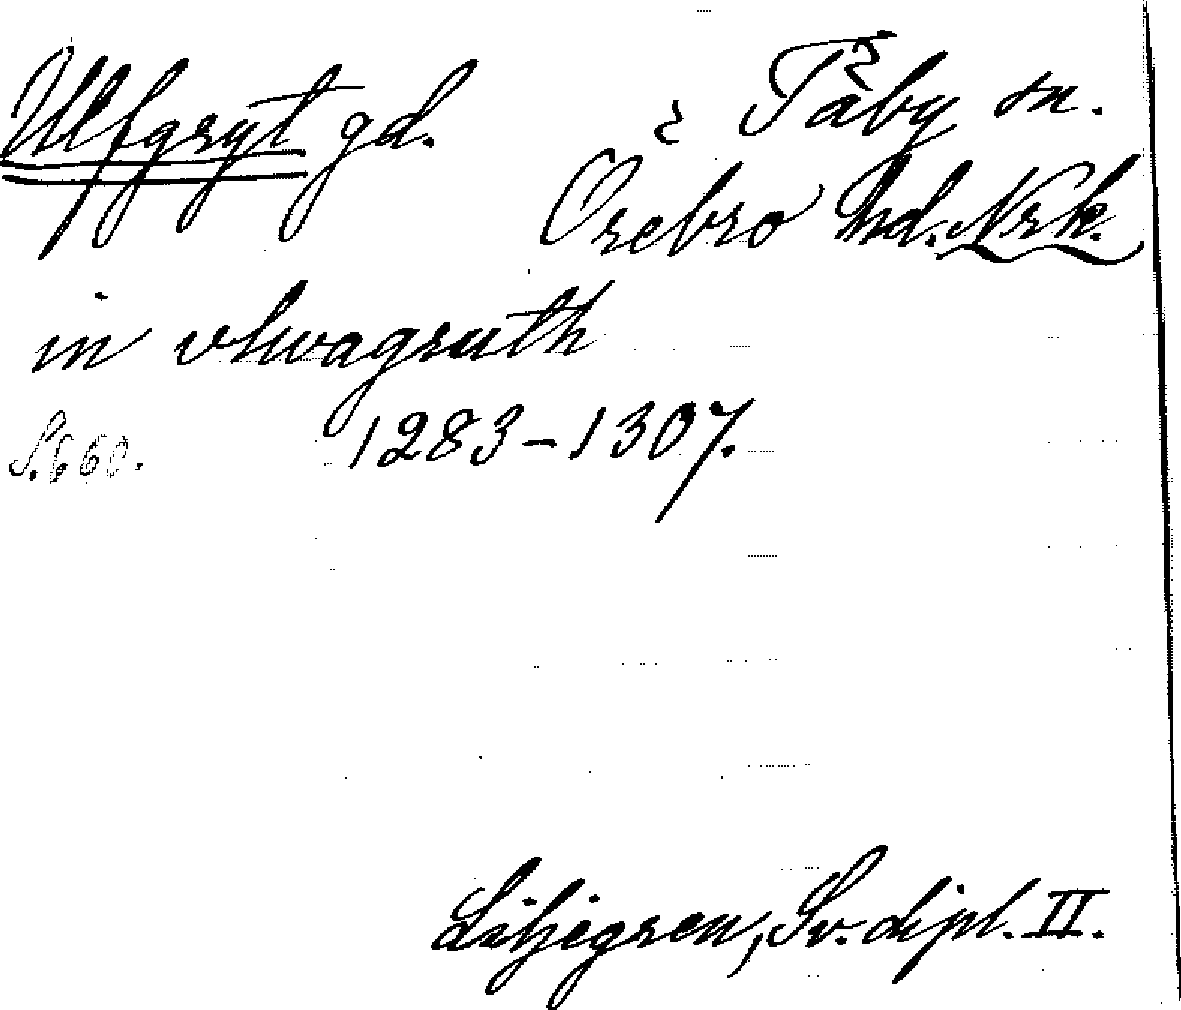 Ulfgryt gd. Täby sn.
Örebro hd. Nrk.
in vlwagruth
S. 660. 1283-1307.
Liljegren, Sv. dipl. II.